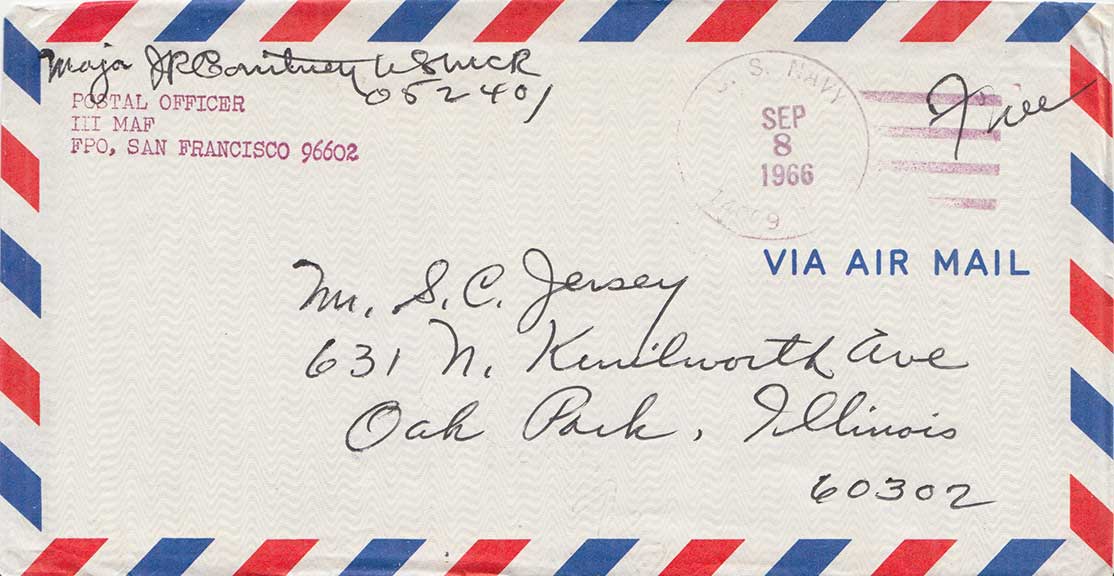 Major JR Courtney USMCR
052401
POSTAL OFFICER
III MAF
FPO, SAN FRANCISCO 96602
U. S. NAVY
SEP
8
1966
Free
VIA AIR MAIL
Mr. S. C. Jersey
631 N. Kenilworth Ave
Oak Park, Illinois
60302